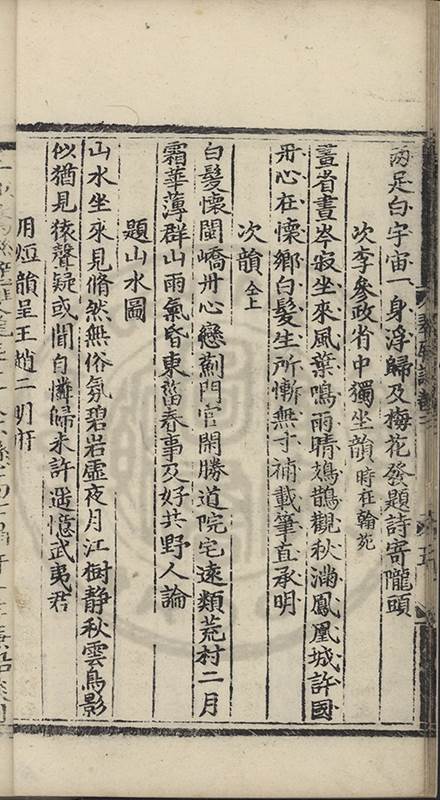 兩足白宇宙一身浮歸及梅花發題詩寄隴頭
次李參政省中獨坐韻時在翰苑
畫省晝岑寂坐來風葉鳴雨晴鳷鵲觀秋滿鳳凰城許國
丹心在懷鄉白髮生所慚無寸補載筆直承明
次韻仝上
白髮懷閩嶠丹心戀薊門官閑勝道院宅遠類荒村二月
霜華薄群山雨氣昏東菑春事及好共野人論
題山水圖
山水坐來見翛然無俗氛碧岩虛夜月江樹静秋雲鳥影
似猶見猿聲疑或聞自憐歸未許遥憶武夷君
用短韻呈王趙二明府